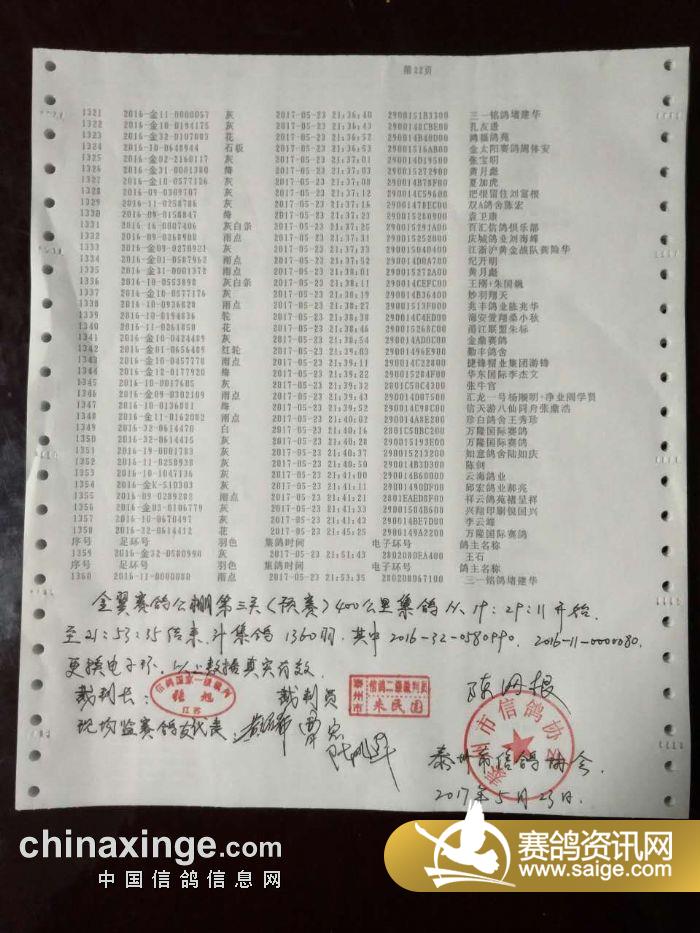 第22页
1321 2016-金11-0000057 灰 2017-05-23 21:36:40 2900151B3300 三一铭鸽堵建华
1322 2016-金10-0194175 灰 2017-05-23 21:36:43 2900148CBE00 孔友进
1323 2016-金32-0107003 花 2017-05-23 21:36:52 290014B40D00 鸿福鸽苑
1324 2016-10-0648944 石板 2017-05-23 21:36:58 2900151 金太阳赛鸽周体安
1325 2016-金02-2160117 灰 2017-05-23 21:37:01 290014D19500 张宝明
1326 2016-金31-0001380 绛 2017-05-23 21:37:03 290015272900 黄月彪
1327 2016-金10-0577126 灰 2017-05-23 21:37:08 夏加虎
1328 2016-09-0309707 灰 2017-05-23 21:37:12 290014C59600 把根留住刘富根
1329 2016-11-0258786 灰 2017-05-23 21:37:16 双A鸽舍陈宏
1330 2016-09-0150847 绛 2017-05-23 袁卫康
1331 2016-16-0007406 灰白条 2017-05-23 百汇信鸽俱乐部
1332 2016-09-0260900 雨点 2017-05-23 庆城鸽业刘海峰
1333 灰 2017-05-23 江浙沪黄金战队龚险华
1334 雨点 2017-05-23 纪开明
1335 2016-金31-0001372 雨点 2017-05-23 21:38:01 黄月彪
1336 灰白条 2017-05-23 21:38:11 王刚+朱国巍
1337 2016-金10-0577176 灰 2017-05-23 21:38:19 290014B36400 妙羽翔天
1338 2016-10-0936820 雨点 2017-05-23 21:38:27 兆丰鸽业陈兆华
1339 2016-10-0194836 2017-05-23 21:38:48 290014C4ED00 海安爱翔桑小秋
1340 2016-11-0261850 花 2017-05-23 21:38:51 290015268C00 甬江联盟朱标
1341 2016-金10-0424489 灰 2017-05-23 21:38:54 290014AD0C00 金鼎赛鸽
1342 2016-金01-0656489 红轮 2017-05-23 21:39:03 29001496E900 勤丰鸽舍
1343 2016-金10-0457778 雨点 2017-05-23 21:39:11 290014C22800 捷锋帽业集团游锋
1344 2016-金12-0177920 绛 2017-05-23 21:39:22 华东国际李杰文
1345 2016-10-0017605 灰 2017-05-23 21:39:32 2801C50C4300 张牛官
1346 2016-金09-0302109 雨点 2017-05-23 21:39:43 290014D07500 汇龙一号杨顺明+净业阁学贤
1347 2016-10-0136081 绛 2017-05-23 21:39:52 290014C98C00 信天游八仙同舟张鼎浩
1348 2016-金11-0162082 雨点 2017-05-23 21:40:02 290014A8E200 珍白鸽舍王秀珍
1349 2016-32-0614470 白 2017-05-23 21:40:16 2801C50BC200 万隆国际赛鸽
1350 2016-32-0614415 灰 2017-05-23 21:40:28 290015193E00 万隆国际赛鸽
1351 2016-19-0001783 灰 2017-05-23 21:40:37 290015213200 如意鸽舍陆如庆
1352 2016-11-0250938 灰 2017-05-23 21:40:50 290014B3D300 陈剑
1353 2016-10-1047136 灰 2017-05-23 21:41:00 290014B60000 云海鸽业
1354 2016-金K-510303 灰 2017-05-23 21:41:11 29001490DF00 邱宏鸽业郝亮
1355 2016-09-0289202 雨点 2017-05-23 21:41:21 2801EAED8F00 祥云鸽苑褚呈祥
1356 2016-金03-0106779 灰 2017-05-23 21:41:33 290015045B00 兴翔印刷倪国兴
1357 2016-10-0670497 灰 2017-05-23 21:41:43 290014BE7D00 李云峰
1358 2016-32-0614412 花 2017-05-23 21:45:25 290015449A2200 万隆国际赛鸽
序号 足环号 羽色 集鸽时间 电子环号 鸽主名称
1359 2016-金32-0580990 灰 2017-05-23 21:51:43 2802080EA400 王石
序号 足环号 羽色 集鸽时间 电子环号 鸽主名称
1360 2016-11-0000080 雨点 2017-05-23 21:53:35 280208067100 三一铭鸽堵建华
金翼赛鸽公棚第三关(预赛)400公里集鸽从19:29:11开始
至21:53:35结束,共集鸽1360羽.其中2016-32-0580990、2016-11-0000080.
更换电子环,以上数据真实有效.
裁判长: 信鸽国家一级裁判 江苏
裁判员 泰州市 信鸽二级裁判员 朱民国
现场监赛鸽友代表:
泰州市信鸽协会
泰州市信鸽协会.
2017年5月23日.
chinaxinge.com
中国信鸽信息网
赛鸽资讯网
www.saige.com